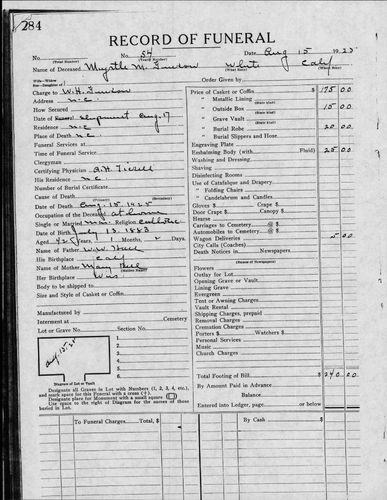 284
RECORD OF FUNERAL
No.
No. 54
Date Aug 15 1925
(Total Number)
(Yearly Number)
Name of Deceased Myrtle M.
White
Calif
(What Race)
(Where Born)
Order Given by
Charge to W.H.
Address N.C.
How Secured
Date of shipment Aug 17
Residence N.C.
Place of Death N.C.
Funeral Services at
Time of Funeral Service
Clergyman
Certifying Physician
His Residence N.C.
Number of Burial Certificate
Cause of Death
(Primary)
(Secondary)
Date of Death Aug. 15 1925
Occupation of the Deceased at home
Single or Married Mar. Religion
Date of Birth July 13 1883
Aged 42 Years, 1 Months, 2 Days
Name of Father
His Birthplace Calif
Name of Mother Mary
(Maiden Name)
Her Birthplace Wis
Body to be shipped to
Size and Style of Casket or Coffin
Manufactured by
Interment at
Cemetery
Lot or Grave No.
Section No.
1
2
3
4
5
6
Diagram of Lot or Vault
Designate all Graves in Lot with Numbers (1, 2, 3, 4, etc.),
and mark space for this Funeral with a cross (+).
Designate place for Monument with a small square
Use space to the right of Diagram for the names of those
buried in Lot.
Price of Casket or Coffin $ 175 00
" Metallic Lining
(State Kind)
" Outside Box 15 00
(State Kind)
" Grave Vault
(State Kind)
" Burial Robe 20 00
(State Kind)
" Burial Slippers and Hose
Engraving Plate
Embalming Body (with Fluid) 25 00
Washing and Dressing
Shaving
Disinfecting Rooms
Use of Catafalque and Drapery
" Folding Chairs
" Candelabrum and Candles
Gloves $ Crape $
Door Crape $ Canopy $
Hearse
Carriages to Cemetery @ $
Automobiles to Cemetery @ $
Wagon Deliveries 5 00
City Calls (Coaches)
Death Notices in Newspapers
(Names of Newspapers)
Flowers
Outlay for Lot
Opening Grave or Vault
Lining Grave
Evergreen
Tent or Awning Charges
Vault Rental
Shipping Charges, prepaid
Removal Charges
Cremation Charges
Porters $ Watchers $
Personal Services
Music
Church Charges
Total Footing of Bill $ 240 00
By Amount Paid in Advance
Balance
Entered into Ledger, page or below.
To Funeral Charges - Total, $
By Cash $